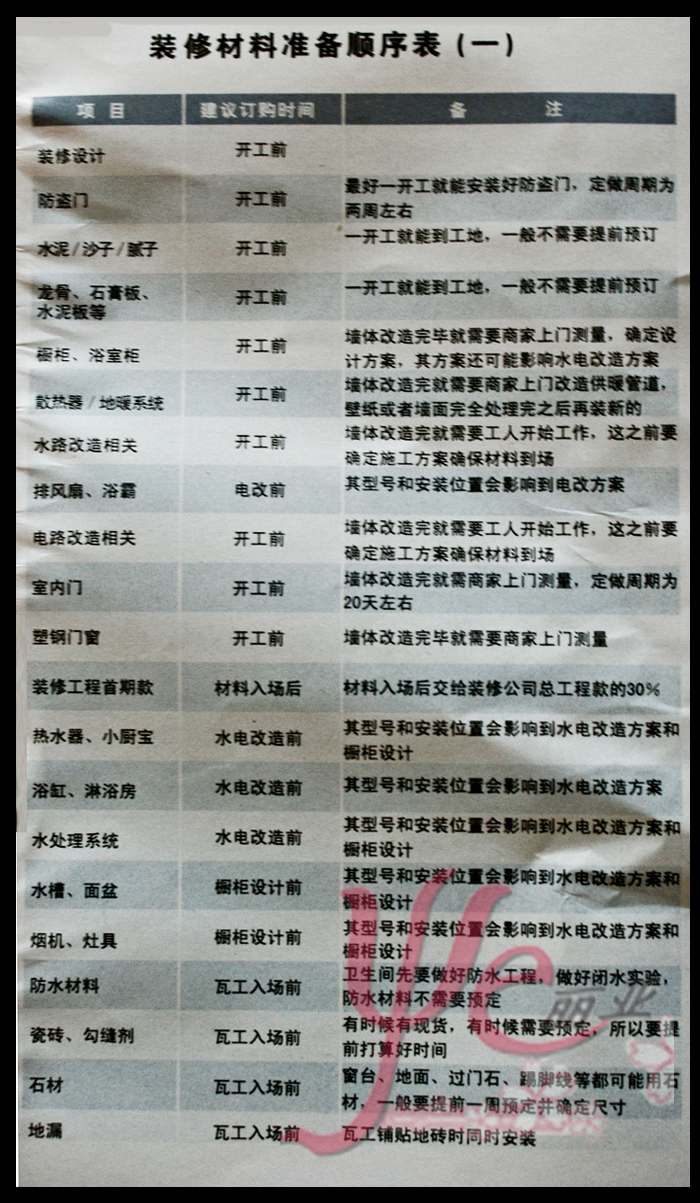 装修材料准备顺序表（一）
项 目 建议订购时间 备 注
装修设计 开工前
防盗门 开工前 最好一开工就能安装好防盗门，定做周期为
两周左右
水泥/沙子/腻子 开工前 一开工就能到工地，一般不需要提前预订
龙骨、石膏板、
水泥板等 开工前 一开工就能到工地，一般不需要提前预订
橱柜、浴室柜 开工前 墙体改造完毕就需要商家上门测量，确定设
计方案，其方案还可能影响水电改造方案
散热器/地暖系统 开工前 墙体改造完就需要商家上门改造供暖管道，
壁纸或者墙面完全处理完之后再装新的
水路改造相关 开工前 墙体改造完就需要工人开始工作，这之前要
确定施工方案确保材料到场
排风扇、浴霸 电改前 其型号和安装位置会影响到电改方案
电路改造相关 开工前 墙体改造完就需要工人开始工作，这之前要
确定施工方案确保材料到场
室内门 开工前 墙体改造完就需商家上门测量，定做周期为
20天左右
塑钢门窗 开工前 墙体改造完毕就需要商家上门测量
装修工程首期款 材料入场后 材料入场后交给装修公司总工程款的30%
热水器、小厨宝 水电改造前 其型号和安装位置会影响到水电改造方案和
橱柜设计
浴缸、淋浴房 水电改造前 其型号和安装位置会影响到水电改造方案
水处理系统 水电改造前 其型号和安装位置会影响到水电改造方案和
橱柜设计
水槽、面盆 橱柜设计前 其型号和安装位置会影响到水电改造方案和
橱柜设计
烟机、灶具 橱柜设计前 其型号和安装位置会影响到水电改造方案和
橱柜设计
防水材料 瓦工入场前 卫生间先要做好防水工程，做好闭水实验，
防水材料不需要预定
瓷砖、勾缝剂 瓦工入场前 有时候有现货，有时候需要预定，所以要提
前打算好时间
石材 瓦工入场前 窗台、地面、过门石、踢脚线等都可能用石
材，一般要提前一周预定并确定尺寸
地漏 瓦工入场前 瓦工铺贴地砖时同时安装
丽业